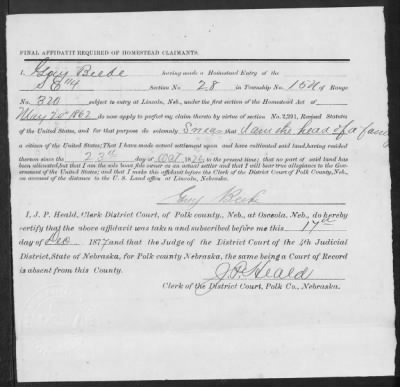 FINAL AFFIDAVIT REQUIRED OF HOMESTEAD CLAIMANTS.
I, Guy Beede having made a Homestead Entry of the
S E ¼ Section No. 28 in Township No. 15N of Range
No. 3 subject to entry at Lincoln, Neb., under the first section of the Homestead Act of
May 20 1862 do now apply to perfect my claim thereto by virtue of section No. 2,291, Revised Statutes
of the United States, and for that purpose do solemnly Swear that I am the head of a family
a citizen of the United States; That I have made actual settlement upon and have cultivated said land, having resided
thereon since the 23d day of Oct to the present time; that no part of said land has
been alienated, but that I am the sole bona fide owner as an actual settler and that I will bear true allegiance to the Gov-
ernment of the United States; and that I make this affidavit before the Clerk of the District Court of Polk County, Neb.,
on account of the distance to the U. S. Land office at Lincoln, Nebraska.
Guy Beede
I, J. P. Heald, Clerk District Court, of Polk county, Neb., at Osceola, Neb., do hereby
certify that the above affidavit was taken and subscribed before me this 17th
day of Dec 1877 and that the Judge of the District Court of the 4th Judicial
District, State of Nebraska, for Polk county Nebraska, the same being a Court of Record
is absent from this County.
J. P. Heald
Clerk of the District Court, Polk Co., Nebraska.